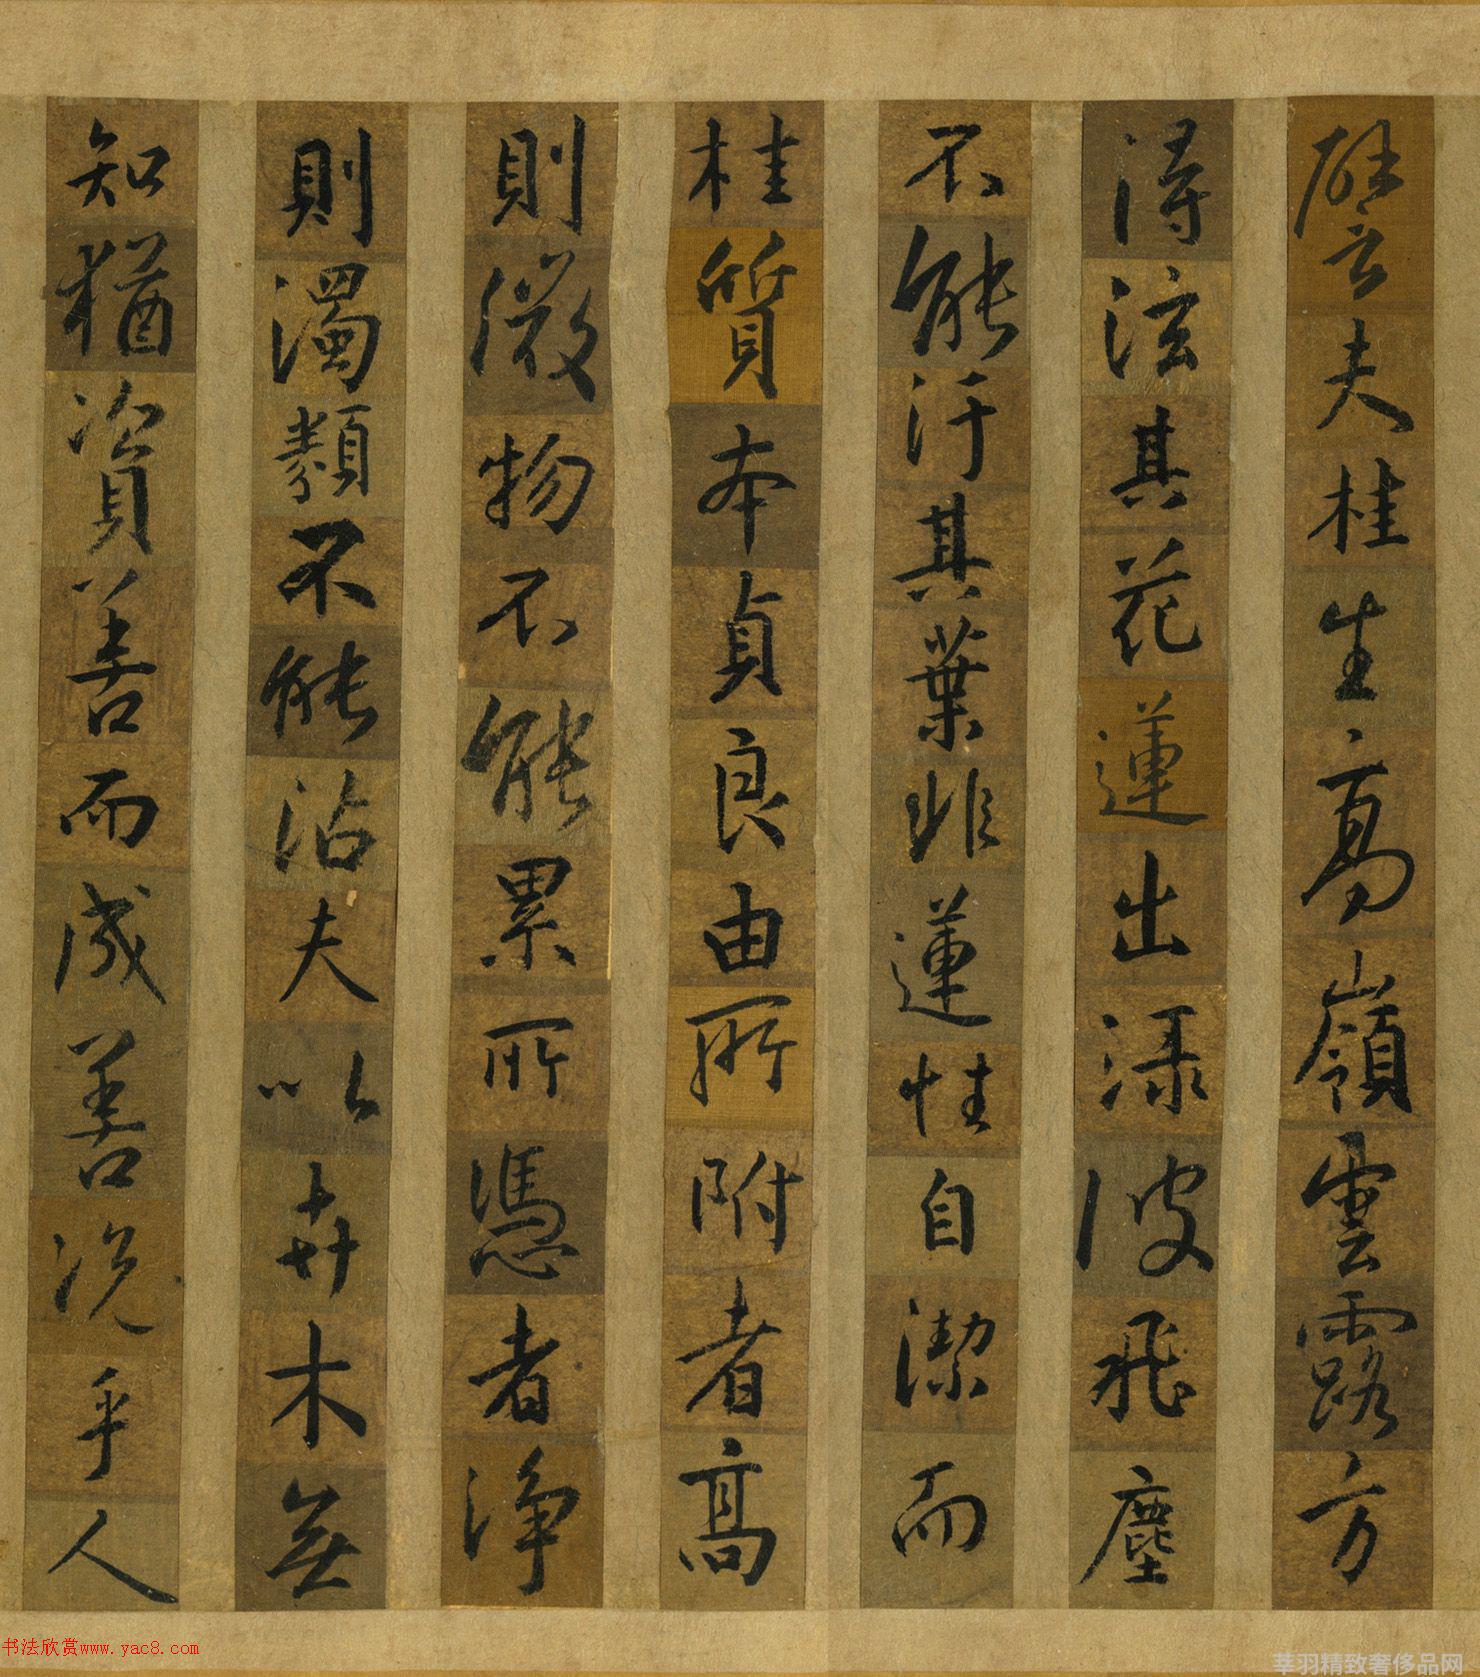 譬夫桂生高嶺雲露方
得泫其花蓮出渌波飛塵
不能汙其葉非蓮性自潔而
桂質本貞良由所附者高
則微物不能累所憑者淨
則濁類不能沾夫以卉木無
知猶資善而成善況乎人
书法欣赏www.yac8.com
莘羽精致奢侈品网